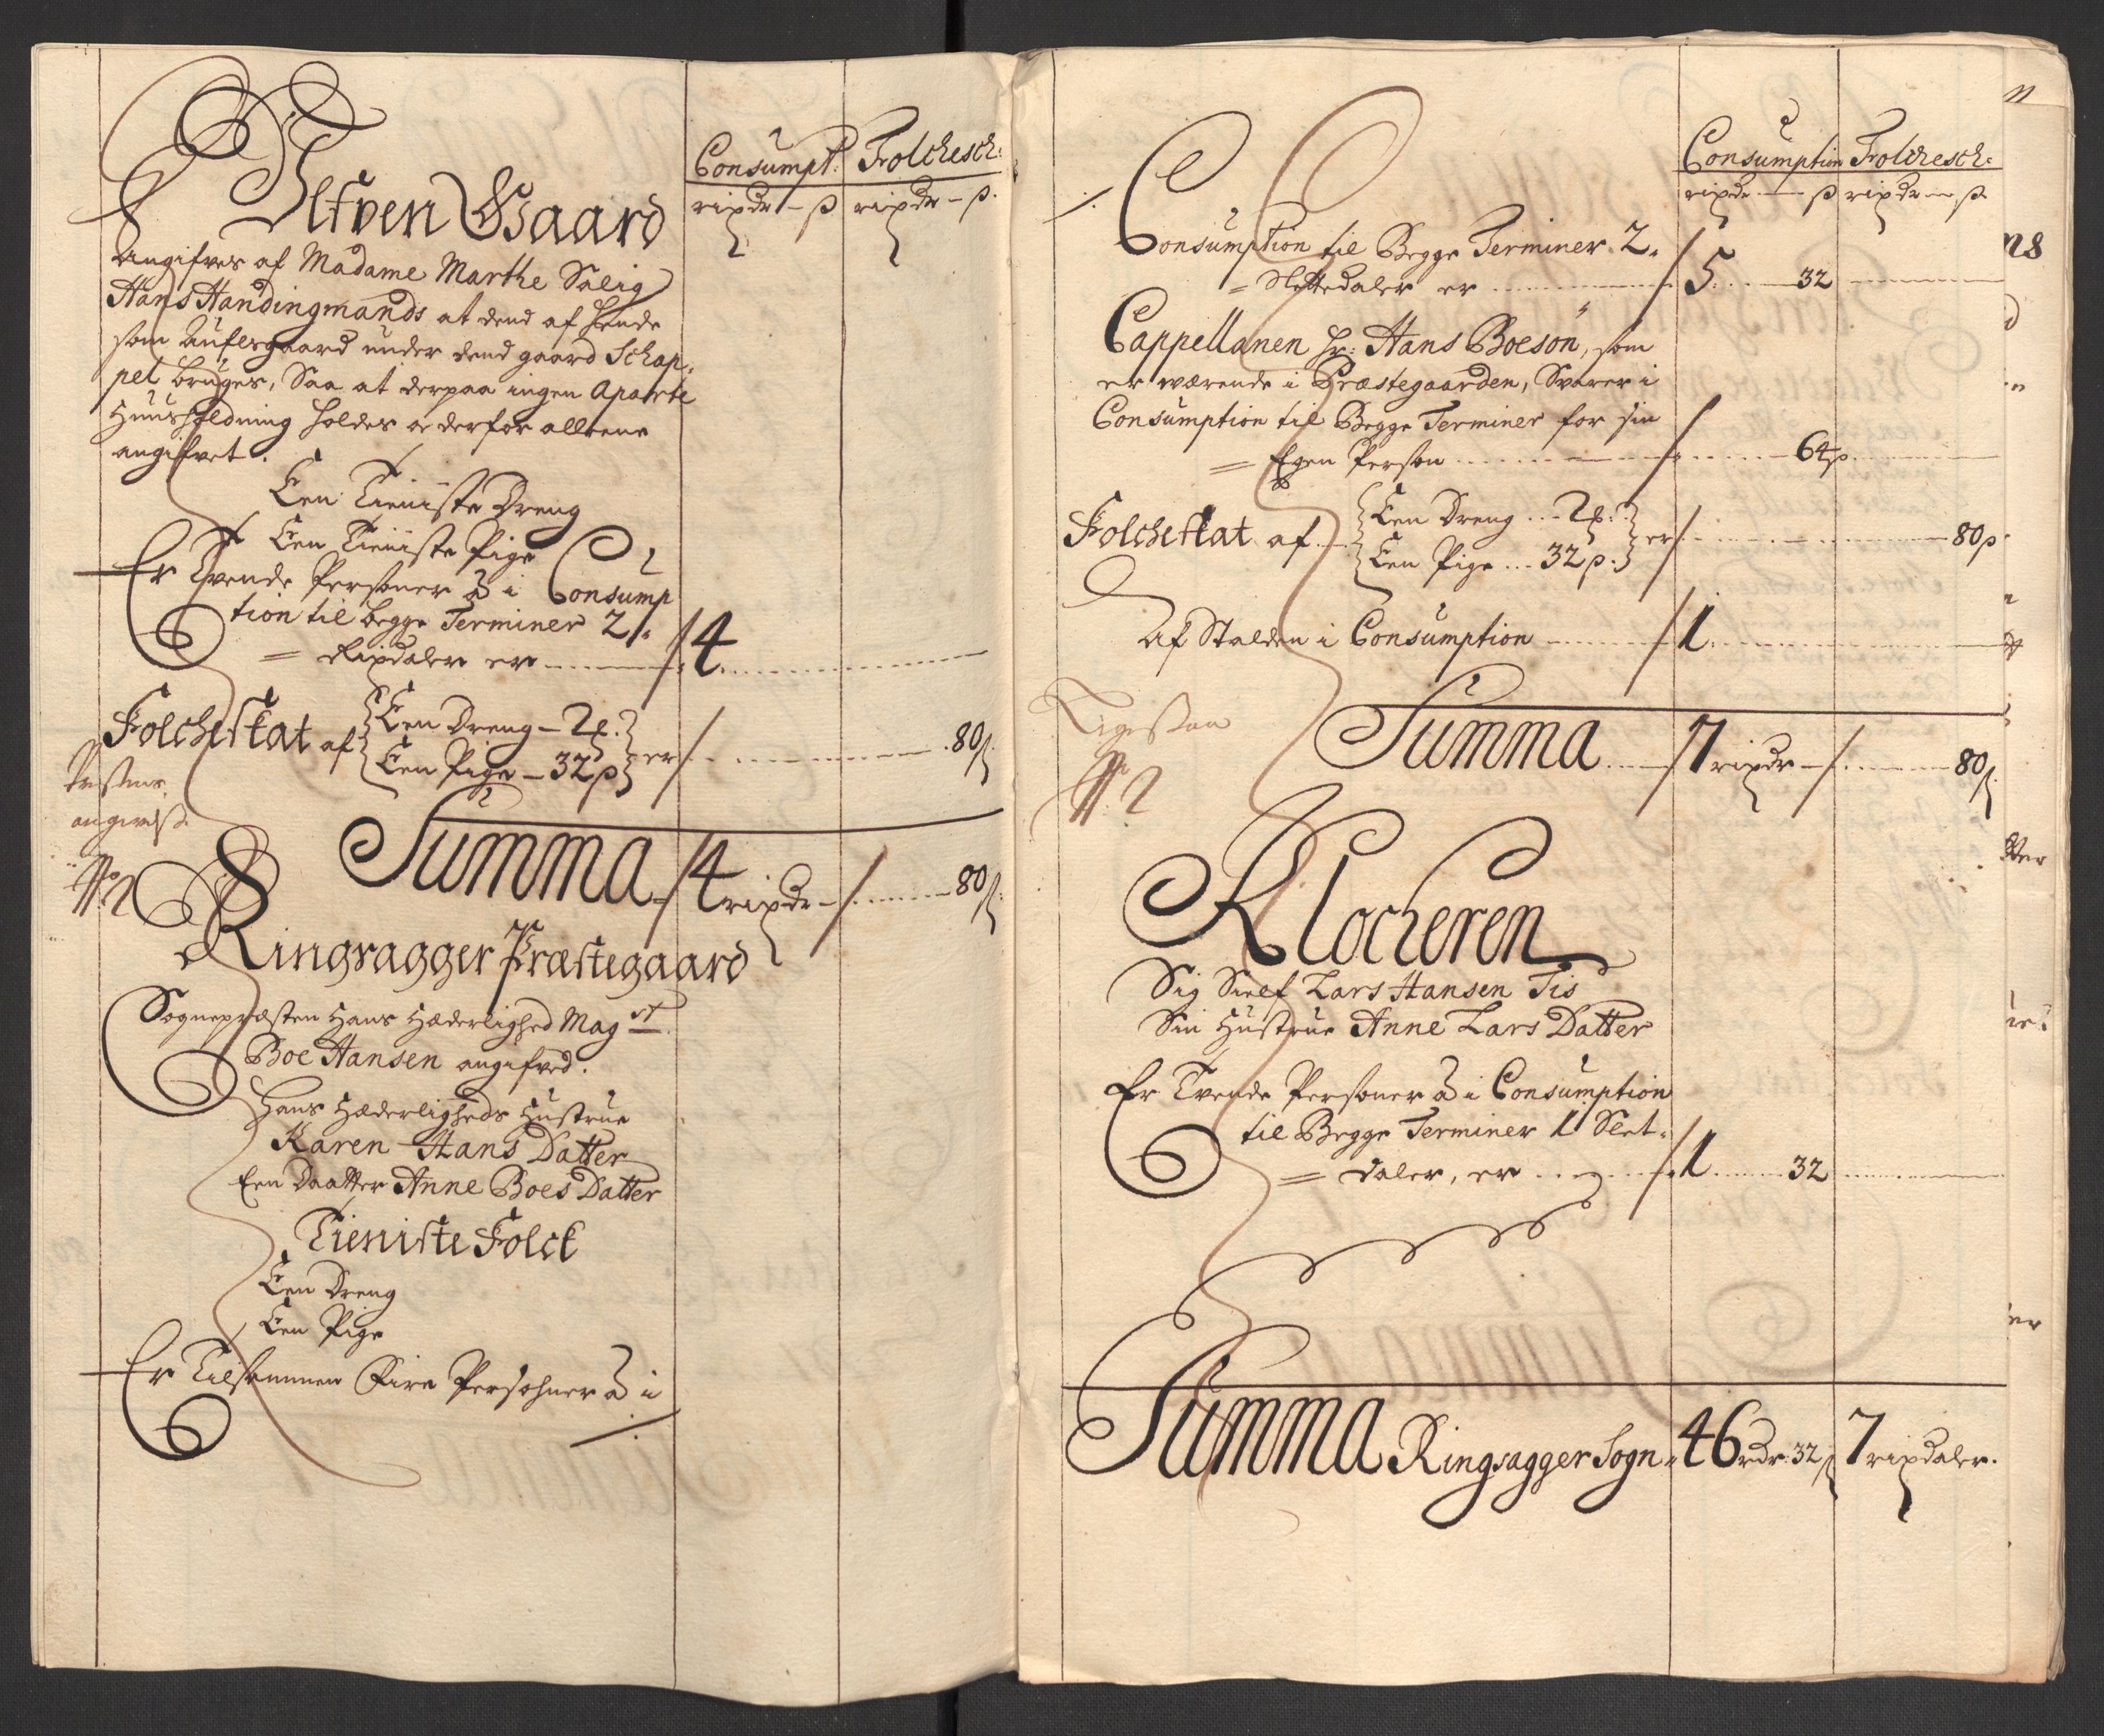 Consumpt: Folchesch:
rixdr – ß rixdr – ß.
Tiltven Gaard
Angifves af Madame Marthe Salig
Hans Handingmands at dend af hende
som Aufelsgaard under dend gaard Schap,,
pel bruges, Saa at derpaa ingen aparte
Huusholdning holdes er derfor alleene
angifvet.
Een Tieniste Dreng
Een Tieniste Pige
Er Tvende Personer â i Consump
tion til begge Terminer 2
= Rixdaler er 4
Folcheskat af Een Dreng – ½ . Een Pige – 32 ß er 80 ß.
Prestens
angivelse
No 2
Summa 4 rixdr – 80 ß.
Ringsagger Præstegaard
Sognepræsten Hans Hæderlighed Mag st.
Boe Hansen angifved.
Hans Hæderligheds Hustrue
Karen Hans Datter
Een Daatter Anne Boes Datter
Tieniste Folck
Een Dreng
Een Pige
Er Tilsammen Fire Persohner â i
Consumption Folchesch:
rixdr – ß rixdr – ß
Consumption til Begge Terminer 2.
= Slettedaler er 5 32
Cappellanen hr: Hans Boesøn, som
er værende i Præstegaarden, Svarer i
Consumption til Begge Terminer for sin
= Egen Person 64 ß
Folcheskat af Een Dreng ... ½ . Een Pige ... 32 ß. er 80 ß.
Af Stalden i Consumption 1.
No 2
Summa 7 rixdr – 80 ß.
Klocheren
Sig Sielf Lars Hansen Tis
Sin Hustrue Anne Lars Datter
Er Tvende Personer â i Consumption
til Begge Terminer 1 Slet-
= daler, er 1 32
Summa Ringsagger Sogn 46 rdr. 32 ß 7 rixdaler.